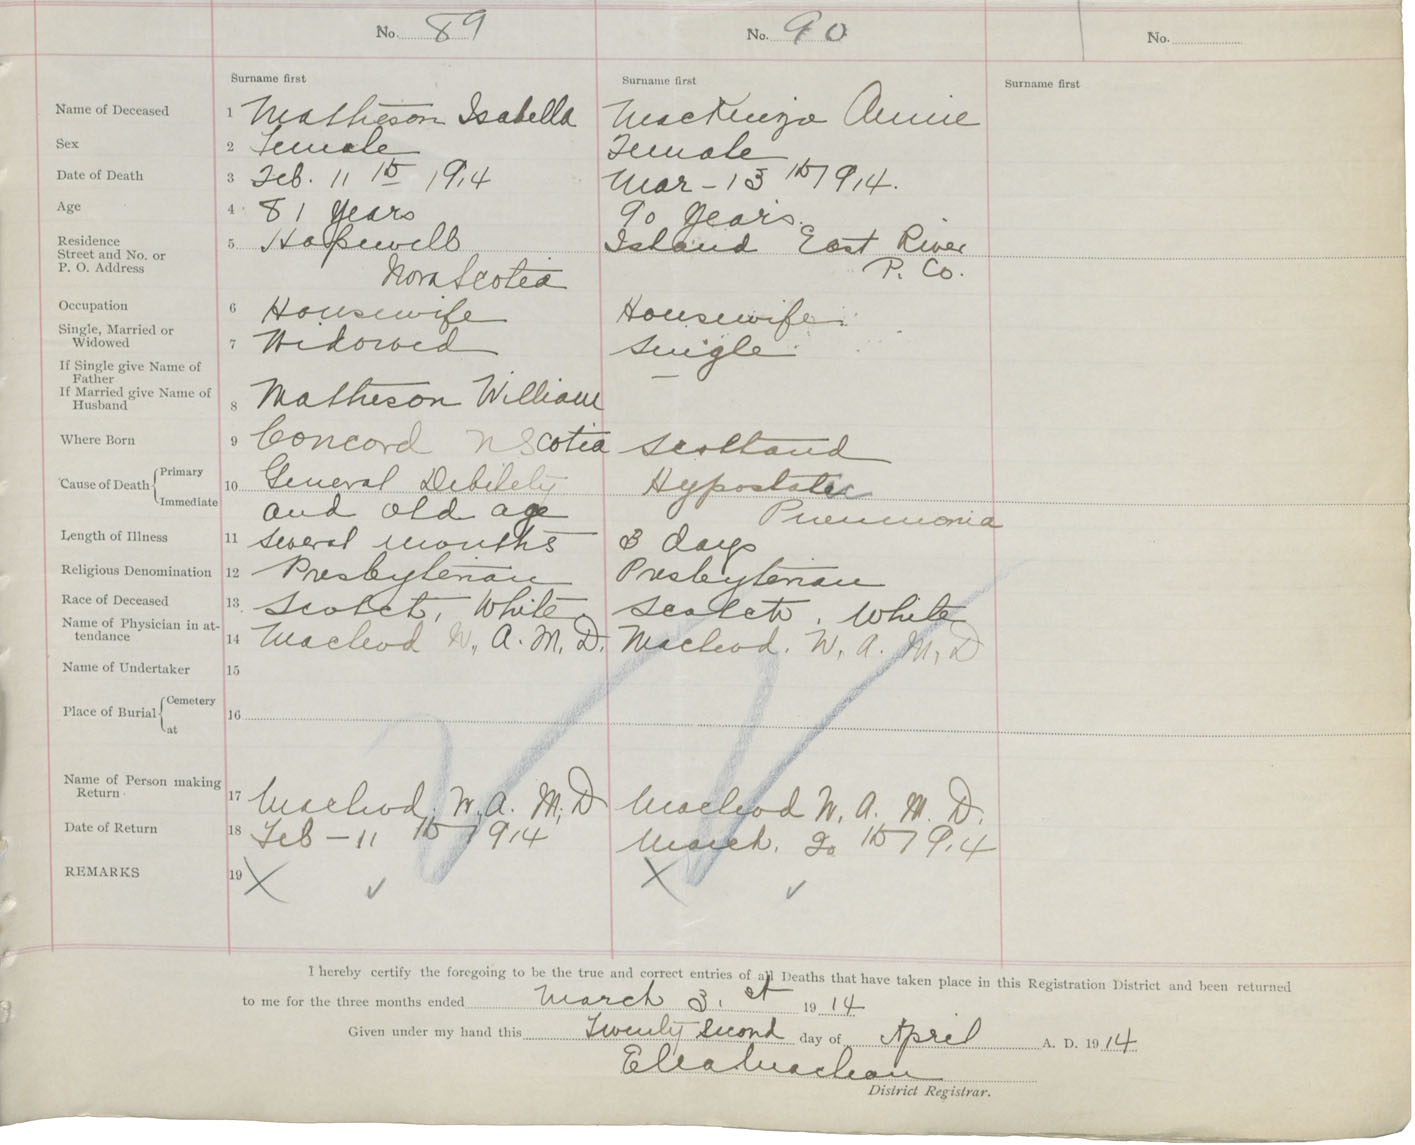 No. 89 No. 90 No.
Surname first Surname first Surname first
Name of Deceased 1 Matheson Isabella MacKenzie Annie
Sex 2 Female Female
Date of Death 3 Feb. 11 th 1914 Mar - 13 th 1914.
Age 4 81 years 90 years.
Residence 5 Hopewell Island East River
Street and No. or
P. O. Address Nova Scotia P. Co.
Occupation 6 Housewife Housewife
Single, Married or
Widowed 7 Widowed Single
If Single give Name of
Father
If Married give Name of
Husband 8 Matheson William
Where Born 9 Concord N Scotia Scotland
Cause of Death Primary 10 General Debility Hypostatic
Immediate and old age Pneumonia
Length of Illness 11 several months 3 days
Religious Denomination 12 Presbyterian Presbyterian
Race of Deceased 13 Scotch, White Scotch, White
Name of Physician in at-
tendance 14 Macleod W, A. M, D. Macleod. W, A. M, D
Name of Undertaker 15
Place of Burial Cemetery 16
at
Name of Person making
Return 17 Macleod. W, A. M, D Macleod W, A. M. D.
Date of Return 18 Feb - 11 th 1914 March. 20 th 1914
REMARKS 19 X ✓ X ✓
I hereby certify the foregoing to be the true and correct entries of all Deaths that have taken place in this Registration District and been returned
to me for the three months ended March 31 st 1914
Given under my hand this Twenty second day of April A. D. 1914
District Registrar.